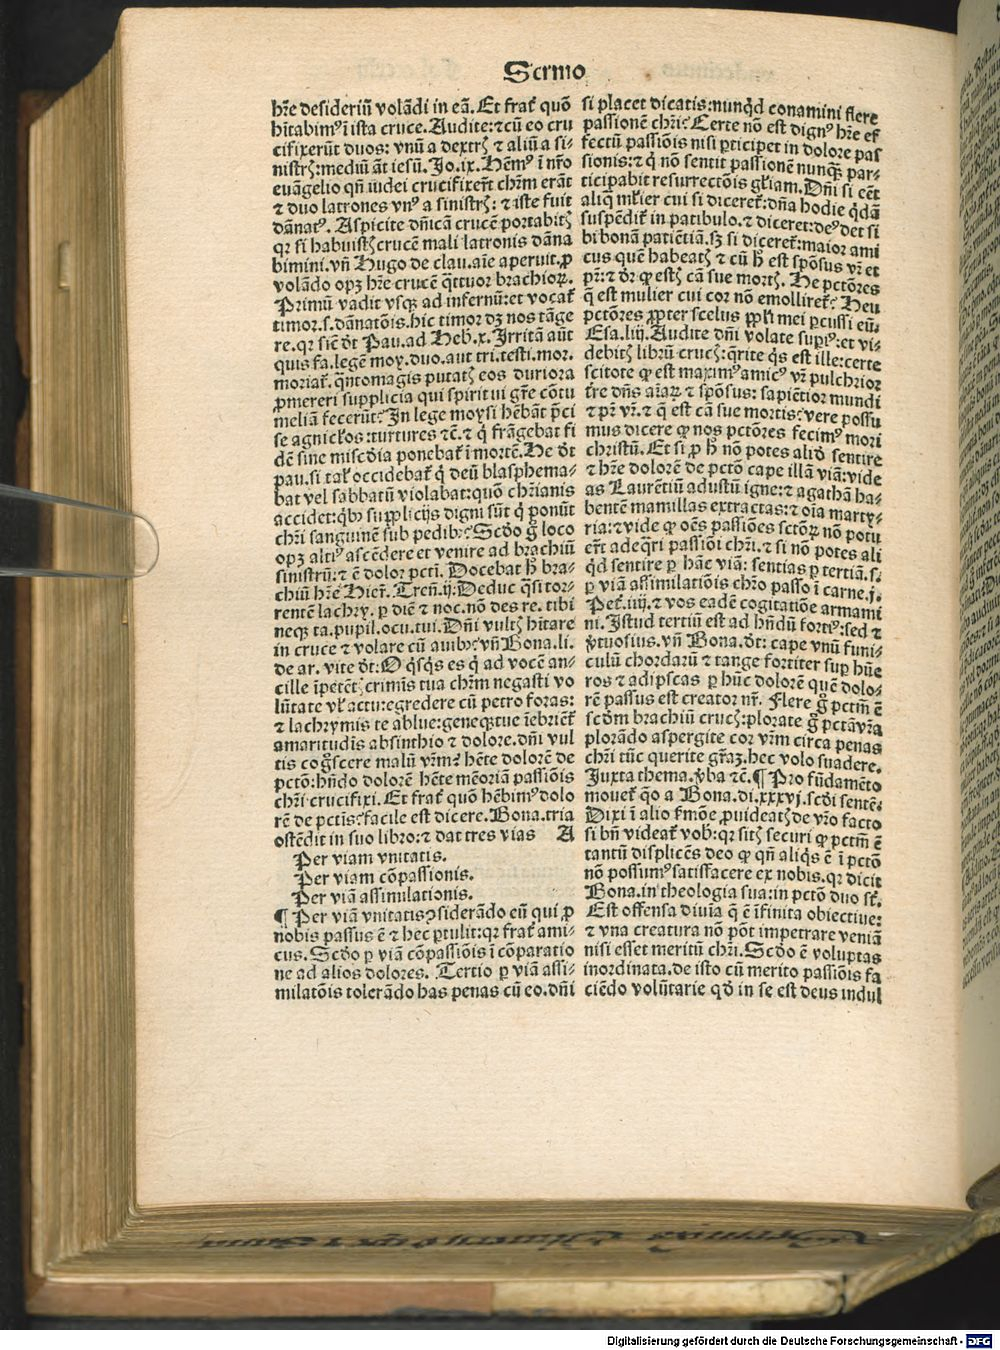 Sermo
hr̄e desideriū volādi in eā. Et frat̄ quō
hītabimꝰ ī ista cruce. Audite: ⁊ cū eo cru
cifixerūt duos: vnū a dextrꝭ ⁊ aliū a si⸗
nistrꝭ: mediū āt iesū. Jo. ix. Hēmꝰ ī nr̄o
euāgelio qn̄ iudei crucifixer̄t chr̄m erāt
⁊ duo latrones vnꝰ a sinistrꝭ: ⁊ iste fuit
dānatꝰ. Aspicite dn̄icā crucē portabitꝭ
qꝛ si habuistꝭ crucē mali latronis dāna
bimini. vn̄ Hugo de clau. aīe aperuit. ꝓ
volādo opꝫ hr̄e crucē q̄ttuor brachioꝝ.
Primū vadit vsqꝫ ad infernū: et vocat̄
timor. s. dānatōis. hic timor dꝫ nos tāge
re. qꝛ sic̄ dt̄ Pau. ad Heb. x. Irritā aūt
quis fa. legē moy. duo. aut tri. testi. mor.
moriat̄. q̄ntomagis putatꝭ eos duriora
ꝓmereri supplicia qui spiritui gr̄e cōtu
meliā fecerūt? In lege moysi hēbāt p̄ci
se agnicl̄os: turtures ⁊c̄. ⁊ q̇ frāgebat fi
dē sine misc̄dia ponebat̄ ī mortē. He dt̄
pau. si tal̄ occidebat̄ q̇ deū blasphema⸗
bat vel sabbatū violabat: quō chr̄ianis
accidet: qb̄ꝰ supplicijs digni sūt q̇ ponūt
chr̄i sanguinē sub pedibꝰ? Scd̄o g̊ loco
opꝫ altiꝰ ascēdere et venire ad brachiū
sinistrū: ⁊ ē dolor pctī. Docebat ħ bra⸗
chiū hr̄e Hier̄. Tren̄. ij. Deduc q̄si tor⸗
rentē lachry. ꝑ diē ⁊ noc. nō des re. tibi
neqꝫ ta. pupil. ocu. tui. Dn̄i vultꝭ hītare
in cruce ⁊ volare cū ambꝰ? vn̄ Bona. li.
de ar. vite dt̄: O q̇sq̇s es q̇ ad vocē an⸗
cille īpetētꝭ crimīs tua chr̄m negasti vo
lūtate vl̄ actu: egredere cū petro foras:
⁊ lachrymis te ablue: geneqꝫ tue īebriēt̄
amaritudīs absinthio ⁊ dolore. dn̄i vul
tis cogꝰscere malū vr̄m? hēte dolorē de
pctō: hn̄do dolorē hēte mēoriā passiōis
chr̄i crucifixi. Et frat̄ quō hēbimꝰ dolo
rē de pctīs? facile est dicere. Bona. tria
ostēdit in suo libro: ⁊ dat tres vias A
Per viam vnitatis.
Per viam cōpassionis.
Per viā assimulationis.
¶ Per viā vnitatis ꝯsiderādo eū qui ꝓ
nobis passus ē ⁊ hec ꝑtulit: qꝛ frat̄ ami⸗
cus. Scd̄o ꝑ viā cōpassiōis ī cōparatio
ne ad alios dolores. Tertio ꝑ viā assi⸗
milatōis tolerādo has penas cū eo. dn̄i
si placet dicatis: nunq̇d conamini flere
passionē chr̄i? Certe nō est dignꝰ hr̄e ef
fectū passiōis nisi ꝑticipet in dolore pas
sionis: ⁊ q̇ nō sentit passionē nunqꝫ par⸗
ticipabit resurrectōis gl̄iam. Dn̄i si eēt
aliq̄ ml̄ier cui si diceret̄: dn̄a hodie q̇dā
suspēdit̄ in patibulo. ⁊ diceret: deꝰ det si
bi bonā patiētiā. sꝫ si diceret̄: maior ami
cus quē habeatꝭ ⁊ cū ħ est spōsus vr̄ et
pr̄: ⁊ dr̄ ꝙ estꝭ cā sue mortꝭ. He pctōres
q̄ est mulier cui cor nō emolliret̄? Heu
pctōres ꝓpter scelus ppl̄i mei ꝑcussi eū.
Esa. liij. Audite dn̄i volate surꝰ: et vi⸗
debitꝭ librū crucꝭ: q̄rite q̇s est ille: certe
scitote ꝙ est maximꝰ amicꝰ vr̄ pulchrior
tr̄e dn̄s aīaꝝ ⁊ spōsus: sapiētior mundi
⁊ pr̄ vr̄. ⁊ q̄ est cā sue mortis? vere possu
mus dicere ꝙ nos pctōres fecimꝰ mori
christū. Et si ꝓ ħ nō potes aliq̇d sentire
⁊ hr̄e dolorē de pctō cape illā viā: vide
as Laurētiū adustū igne: ⁊ agathā ha⸗
bentē mamillas extractas: ⁊ oīa marty⸗
ria: ⁊ vide ꝙ oēs passiōes sctōꝝ nō potu
er̄t adeq̄ri passiōi chr̄i. ⁊ si nō potes ali
q̇d sentire ꝑ hāc viā: sentias ꝑ tertiā. s.
ꝑ viā assimilatiōis chr̄o passo ī carne. j.
Pet̄. iiij. ⁊ vos eadē cogitatiōe armami
ni. Istud tertiū est ad hn̄dū fortiꝰ: sed ⁊
v̓tuosius. vn̄ Bona. dt̄: cape vnū funi⸗
culū chordarū ⁊ tange fortiter suꝑ hūe
ros ⁊ adipscas ꝑ hūc dolorē quē dolo⸗
rē passus est creator nr̄. Flere g̊ pctm̄ ē
scd̄m brachiū crucꝭ: plorate g̊ pctā vr̄a
plorādo aspergite cor vr̄m circa penas
chr̄i tūc querite gr̄aꝫ. hec volo suadere.
Juxta thema. v̓ba ⁊c̄. ¶ Pro fūdamēto
mouet̄ q̊o a Bona. di. xxxvj. scd̓i sentē.
Dixi ī alio f̓mōe ꝓuideatꝭ de vr̄o facto
si bn̄ videat̄ vob̄: qꝛ sitꝭ securi ꝙ pctm̄ ē
tantū displicēs deo ꝙ qn̄ aliq̇s ē ī pctō
nō possumꝰ satisfacere ex nobis. qꝛ dicit
Bona. in theologia sua: in pctō duo st̄.
Est offensa diuīa q̄ ē īfinita obiectiue:
⁊ vna creatura nō pōt impetrare veniā
nisi esset meritū chr̄i. Scd̄o ē voluptas
inordinata. de isto cū merito passiōis fa
ciēdo volūtarie qd̓ in se est deus indul
Digitalisierung gefördert durch die Deutsche Forschungsgemeinschaft - DFG